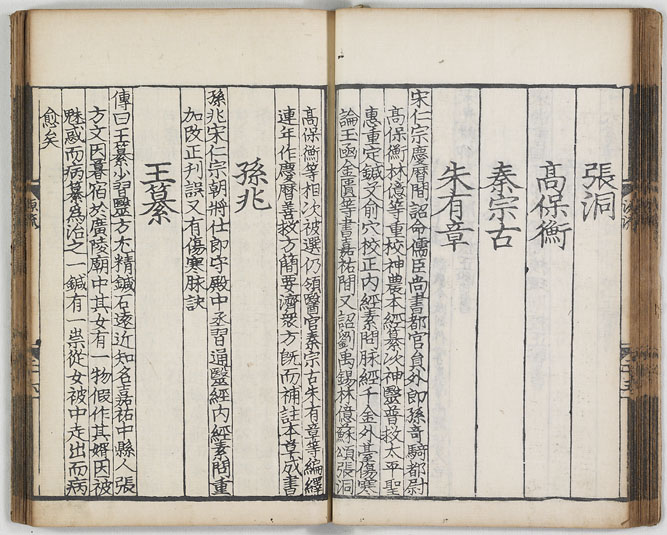 張洞
高保衡
秦宗古
朱有章
宋仁宗慶曆間詔命儒臣尚書都官負外郎孫竒騎都尉
高保衡林億等重校神農本經纂次神醫普救太平聖
惠重定鍼艾俞穴校正内經素問脉經千金外臺傷寒
論玉函金匱等書嘉祐間又詔劉禹錫林億蘇頌張洞
高保衡等相次被選仍領醫官秦宗古朱有章等編繹
連年作慶曆善救方簡要濟衆方既而補註本草成書
孫兆
孫兆宋仁宗朝將仕郎守殿中丞習通醫經内經素問重
加改正刋誤又有傷寒脉訣
王纂
傳曰王纂少習醫方尤精鍼石遠近知名嘉祐中縣人張
方文因暮宿於廣陵廟中其女有一物假作其婿因被
魅惑而病纂爲治之一鍼有一祟從女被中走出而病
愈矣
源流